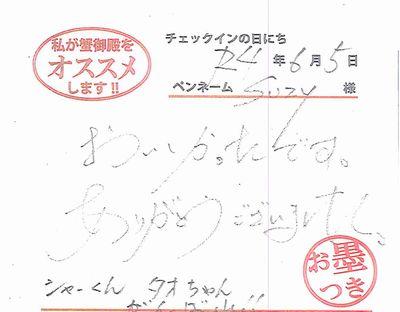 私が蟹御殿を
オススメ
します!!
チェックインの日にち
R4年6月5日
ペンネーム Suzy 様
おいしかったです。
ありがとうございました。
お墨
つき
シャーくん タオちゃん
がんばれ!!